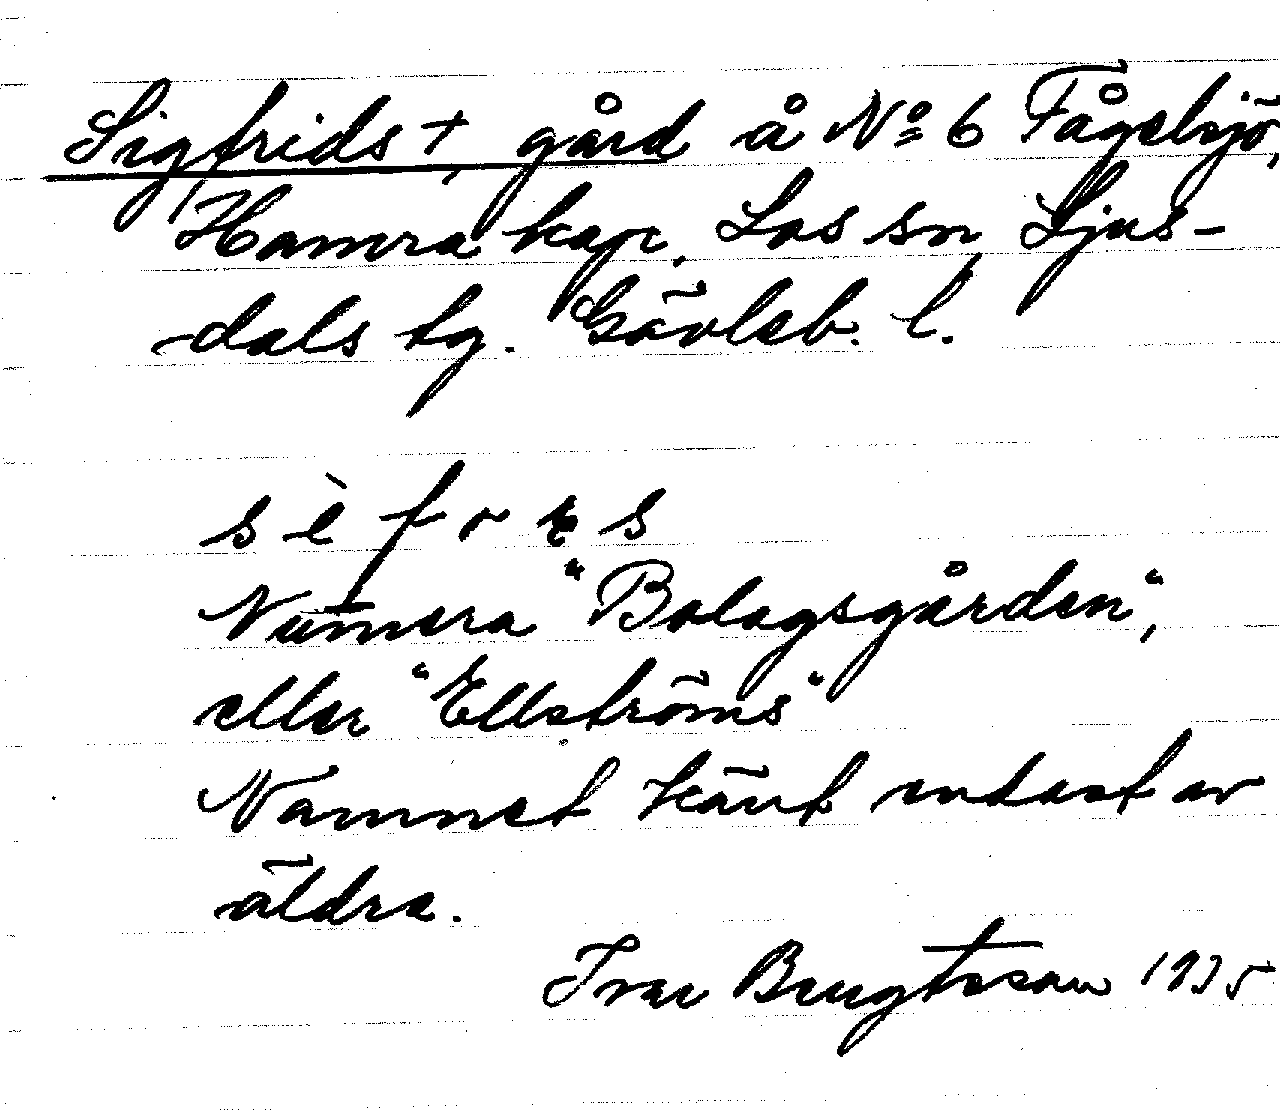 Sigfrids †, gård å Nº 6 Fågelsjö,
Hamra kap. Los sn, Ljus-
dals tg. Gävleb. l.
sè f r s
Numera "Bolagsgården",
eller "Ellströms"
Namnet känt endast av
äldre.
Ivar Bengtsson 1935